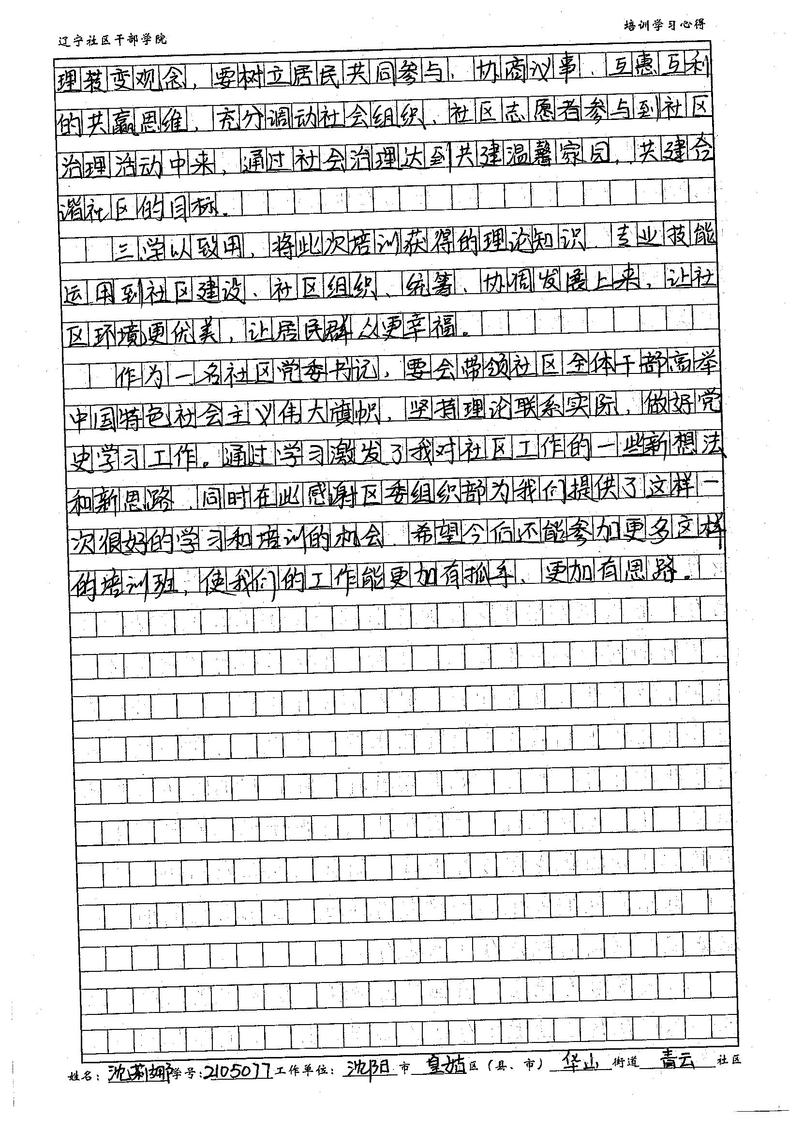 辽宁社区干部学院
培训学习心得
理转变观念，要树立居民共同参与、协商议事、互惠互利
的共赢思维，充分调动社会组织、社区志愿者参与到社区
治理活动中来，通过社会治理达到共建温馨家园，共建合
谐社区的目标。
三学以致用，将此次培训获得的理论知识、专业技能
运用到社区建设、社区组织、统筹、协调发展上来，让社
区环境更优美，让居民群众更幸福。
作为一名社区党委书记，要会带领社区全体干部高举
中国特色社会主义伟大旗帜，坚持理论联系实际，做好党
史学习工作。通过学习激发了我对社区工作的一些新想法
和新思路，同时在此感谢区委组织部为我们提供了这样一
次很好的学习和培训的机会，希望今后还能参加更多这样
的培训班，使我们的工作能更加有抓手、更加有思路。
姓名：沈莉娜学号：2105077工作单位：沈阳市皇姑区（县、市）华山街道青云社区